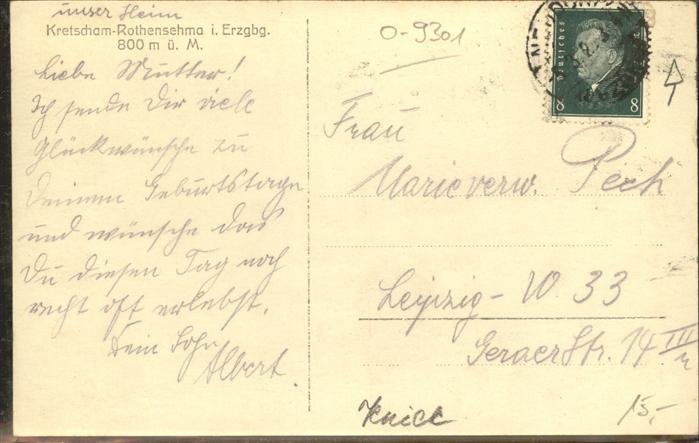 unser Heim
Kretscham-Rothensehma i. Erzgbg.
800 m ü. M.
Liebe Mutter!
Ich sende Dir viele
Glückwünsche zu
Deinem Geburtstage
und wünsche das
Du diesen Tag noch
recht oft erlebst.
Dein Sohn
Albert.
O-9301
Deutsches
8 8
Frau
Marie verw. Pech
Leipzig - W 33
Geraer Str. 14 III
Knick
15,-